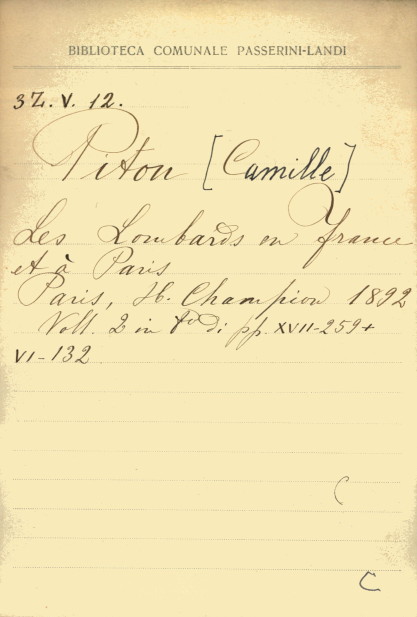 BIBLIOTECA COMUNALE PASSERINI-LANDI
3Z. V. 12.
Piton [Camille]
Les Lombards en France
et à Paris
Paris, H. Champion 1892
Voll. 2 in 8º di pp. XVII-259+
VI-132
C
C